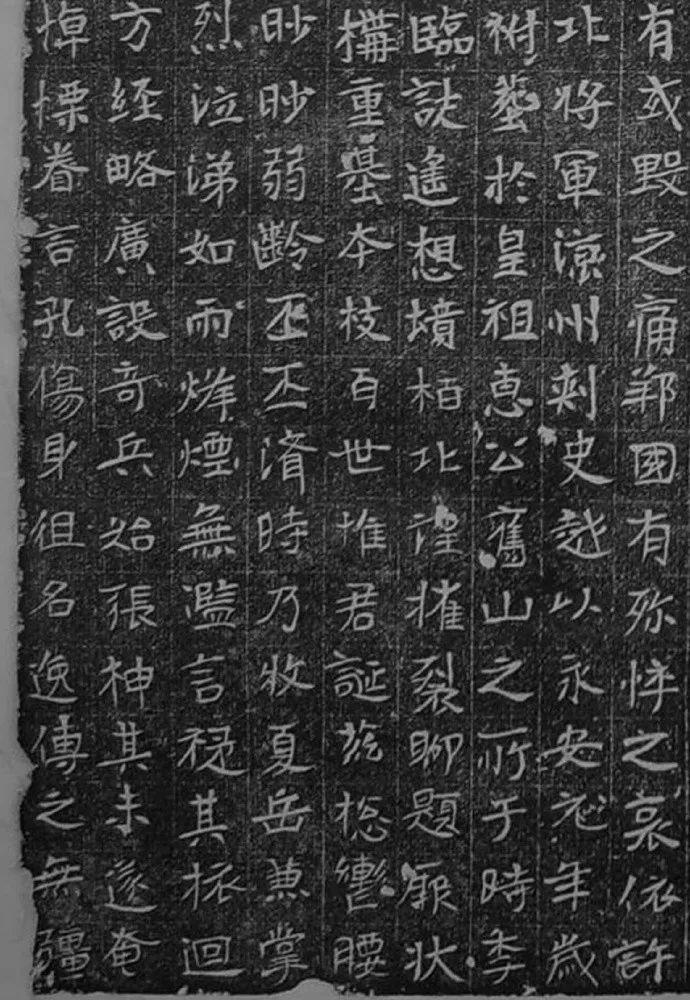 有或毀之痛鄰國有殄悴之哀依許
北將軍涼州刾史越以永安元年歲
祔塟於皇祖惠公舊山之所于時季
臨訣遙想墳栢北望摧裂聊題厥状
構重基本枝百世惟君誕茲揔轡腰
眇眇弱齡丕丕濟時乃牧夏岳兼掌
烈泣涕如雨烽煙無濫言穆其旅迴
方経略廣設奇兵始張神其未遂奄
悼慄眷言孔傷身徂名逸傳之無疆